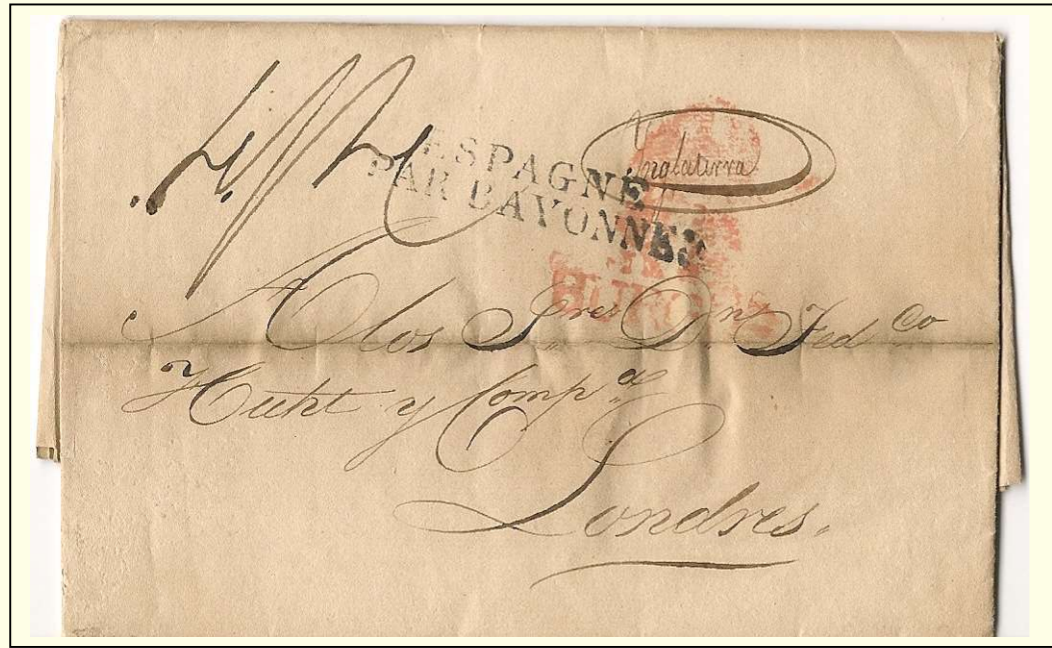 ESPAGNE
PAR BAYONNE
Inglaterra
BURGOS
A los Sres Dn Fedco
Huht y Compa
Londres.